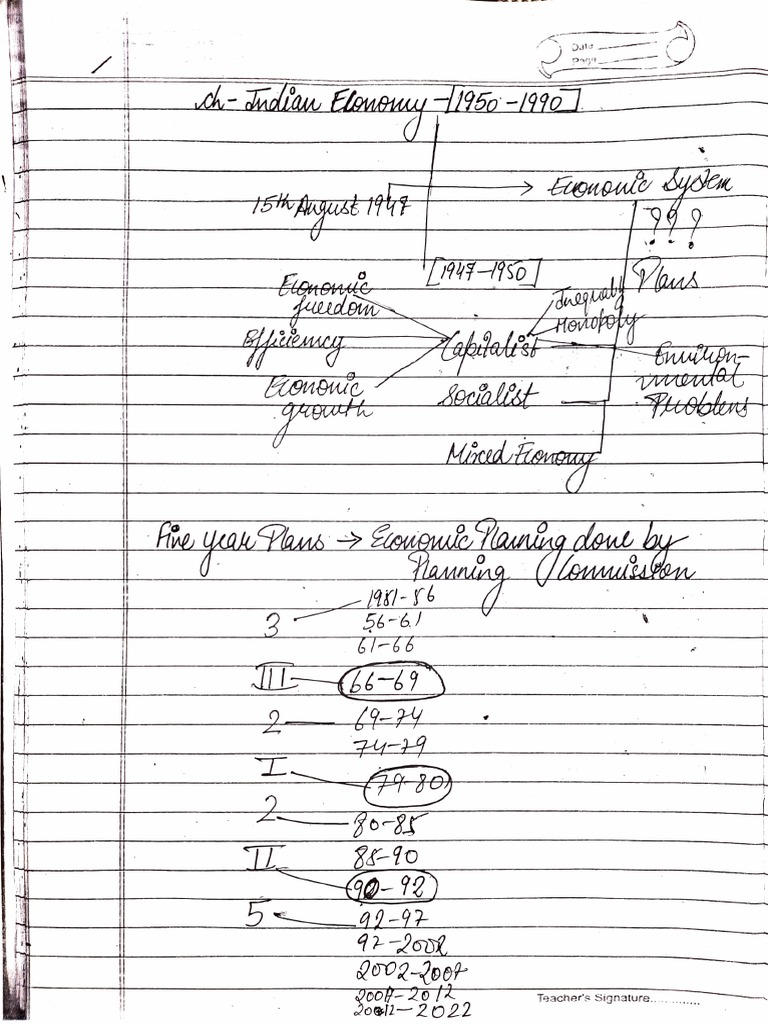 Date
Page
ch- Indian Economy - [1950-1990]
15th August 1947 → Economic System
? ? ?
[1947-1950] Plans
Economic freedom
Inequality
Monopoly
Efficiency
Capitalist
Environ-
mental
Problems
Economic growth
Socialist
Mixed Economy
Five year Plans → Economic Planning done by
Planning Commission
3 1951-56
56-61
61-66
III 66-69
2 69-74
74-79
I 79-80
2 80-85
85-90
II 90-92
5 92-97
97-2002
2002-2007
2007-2012
2012-2022
Teacher's Signature..............